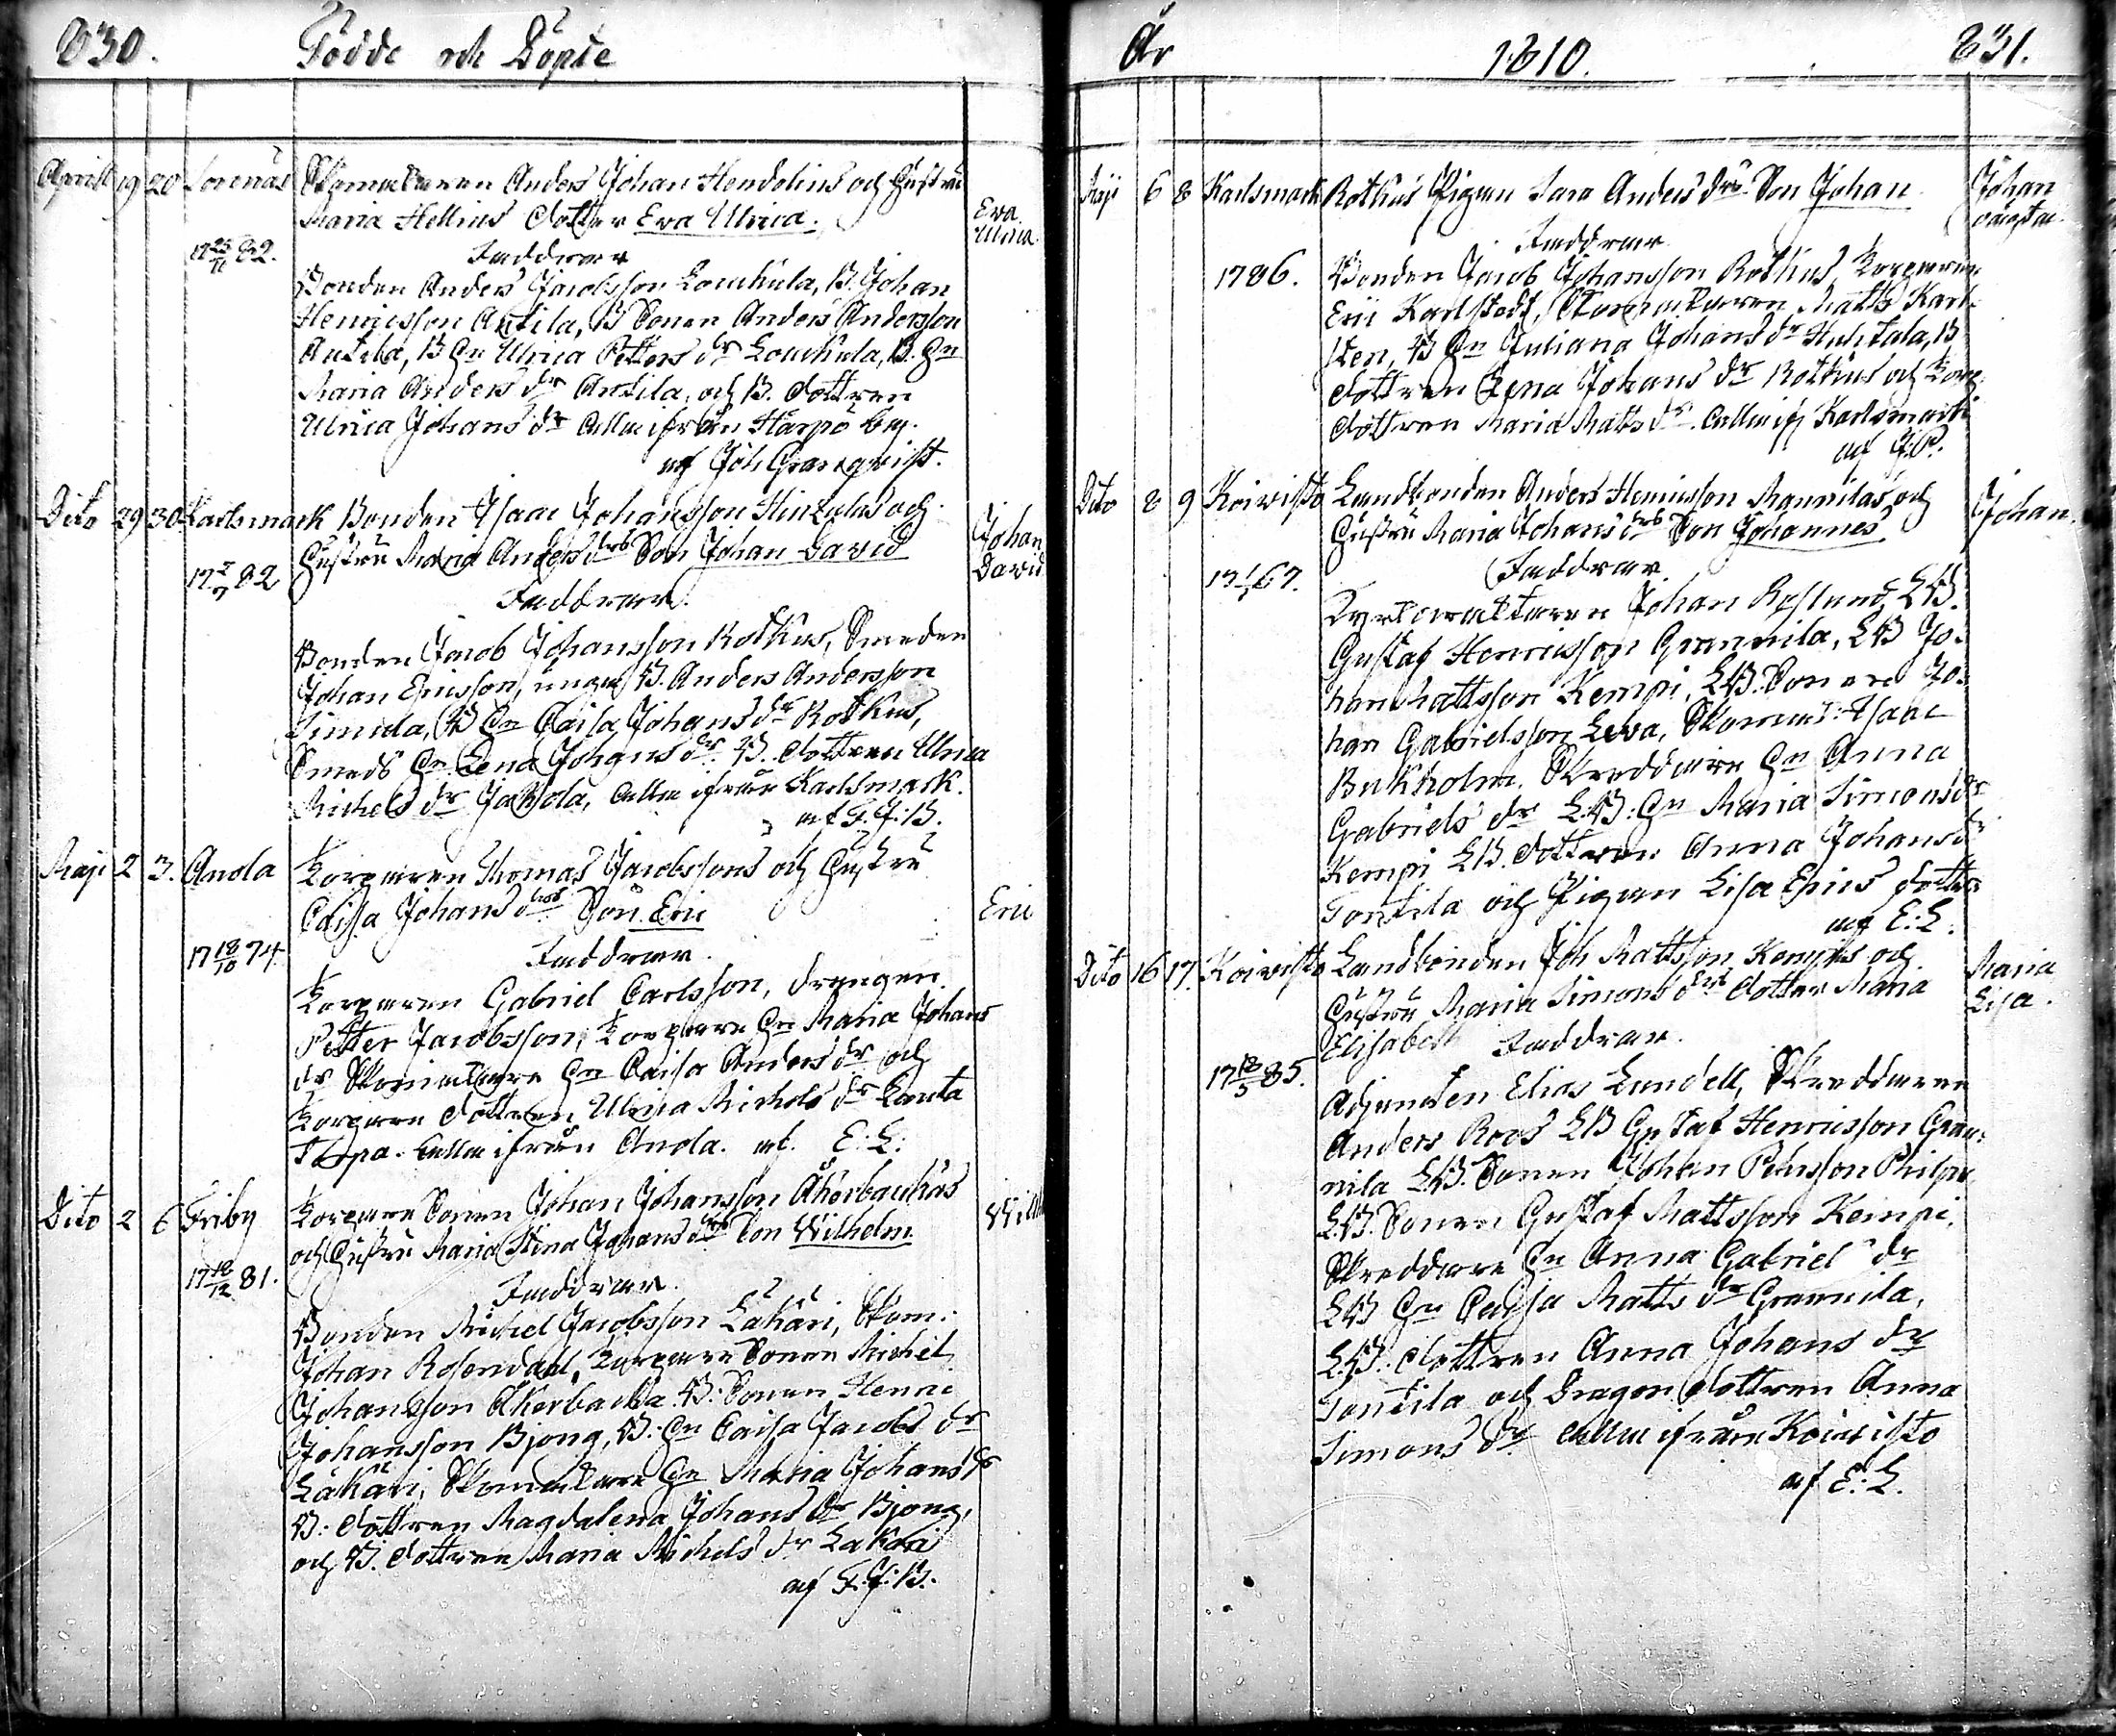 830. Födde och Döpte
Aprill 19 20 Sorenäs Skomakaren Anders Johan Hendelins och Hustru
Maria Hellins dotter Eva Ulrica.
Eva Ulrica
17 25/11 82.
Faddrar
Bonden Anders Jacobsson Louhula, B. Johan
Henricsson Antila, B Sonen Anders Andersson
Antila, B Hu Ulrica Petters dr Louhula, B. Hu
Maria Anders dr Antila, och B. dottren
Ulrica Johans dr alla ifrån Harpö by.
af Joh Granqvist.
Dito 29 30 Karlsmark Bonden Isaac Johansson Hintzulas och
Hustru Maria Anders drs Son Johan David
Johan David
17 82
Faddrar.
Bonden Jacob Johansson Rotkus, Smeden
Johan Ericsson, unga B. Anders Andersson
Simula, B Hu Caisa Johans dr Rotkus,
Smeds Hu Lena Johans dr B. dottren Ulrica
Michels dr Jakola, alla ifrån Karlsmark.
af F. J: B.
Maji 2 3. Anola Torparen Thomas Jacobssons och Hustru
Caisa Johans drs Son Eric
Eric
17 18/10 74.
Faddrar.
Torparen Gabriel Carlsson, drengen
Petter Jacobsson, Torpare Hu Maria Johans
dr Skomakare Hu Caisa Anders dr och
Torpare dottren Ulrica Michels dr
alla ifrån Anola. af. E: L:
Dito 2 6 Friby Torpare Sonen Johan Johansson Åkerbackas
och Hustru Maria Stina Johans drs Son Wilhelm
17 18/12 81.
Faddrar.
Bonden Michel Jacobsson Läkäri, Skom:
Johan Rosendal, Torpare Sonen Michel
Johansson Åkerbacka. B: Sonen Henric
Johansson Bjong, B: Hu Caisa Jacobs dr
Läkäri, Skomakare Hu Maria Johans dr
B: dottren Magdalena Johans dr Bjong,
och B. dottren Maria Michels dr Lakäri
af F. J: B.
År 1810. 831.
Maji 6 8 Karlsmark Rotkus Pigan Sara Anders drs Son Johan
Johan oägta
1786.
Faddrar
Bonden Jacob Johansson Rotkus, Torparen
Eric Karlstedt, Skomakaren Matts Karl-
sten, B Hu Juliana Johans dr Huhtala, B
dottren Lena Johans dr Rotkus och Torp.
dottren Maria Matts dr. alla if Karlsmark
af J. P.
Dito 8 9 Koivisto Landbonden Anders Henricsson Mannilas och
Hustru Maria Johans drs Son Johannes
Johan.
17 67.
Faddrar
Johan Roslund, LB.
Gustaf Henricsson Grannila, LB Jo-
han Mattsson Kempi, LB. Sonen Jo-
han Gabrielsson Leva, Skomak: Isaac
Bukholm. Skreddare Hu Anna
Gabriels dr LB: Hu Maria Simons dr
Kempi LB. dottren Anna Johans dr
Tontila och Pigan Lisa Erics dotter
af E: L.
Dito 16 17. Koivisto Landbonden Joh Mattsson Kempis och
Hustru Maria Simons drs dotter Maria
Elisabeth
Maria Lisa.
Faddrar.
17 85.
Adjuncten Elias Lundell, Skreddaren
Anders Roos LB Gustaf Henricsson Gran-
nila LB. Sonen Johan Pehrsson
LB. Sonen Gustaf Mattsson Kempi,
Skreddare Hu Anna Gabriel dr
LB Hu Caisa Matts dr Grannila,
LB. dottren Anna Johans dr
Tontila och Dragon dottren Anna
Simons dr alla ifrån Koivisto
af E: L.